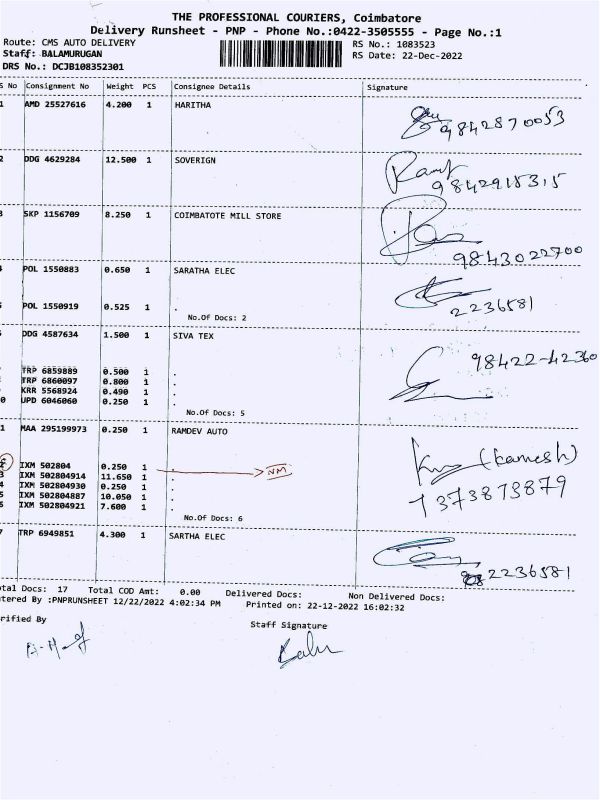 THE PROFESSIONAL COURIERS, Coimbatore
Delivery Runsheet - PNP - Phone No.:0422-3505555 - Page No.:1
Route: CMS AUTO DELIVERY RS No.: 1083523
Staff: BALAMURUGAN RS Date: 22-Dec-2022
DRS No.: DCJB108352301
S No Consignment No Weight PCS Consignee Details Signature
1 AMD 25527616 4.200 1 HARITHA
9842870053
2 DDG 4629284 12.500 1 SOVERIGN
9842915315
3 SKP 1156709 8.250 1 COIMBATOTE MILL STORE
9843022700
4 POL 1550883 0.650 1 SARATHA ELEC
5 POL 1550919 0.525 1 . 2236581
No.Of Docs: 2
DDG 4587634 1.500 1 SIVA TEX
98422-42360
TRP 6859889 0.500 1 .
TRP 6860097 0.800 1 .
KRR 5568924 0.490 1 .
0 UPD 6046060 0.250 1 .
No.Of Docs: 5
1 MAA 295199973 0.250 1 RAMDEV AUTO
(Kamesh)
IXM 502804 0.250 1 . NM
3 IXM 502804914 11.650 1 .
IXM 502804930 0.250 1 . 7373873879
5 IXM 502804887 10.050 1 .
IXM 502804921 7.600 1 .
No.Of Docs: 6
7 TRP 6949851 4.300 1 SARTHA ELEC
2236581
otal Docs: 17 Total COD Amt: 0.00 Delivered Docs: Non Delivered Docs:
tered By :PNPRUNSHEET 12/22/2022 4:02:34 PM Printed on: 22-12-2022 16:02:32
rified By Staff Signature